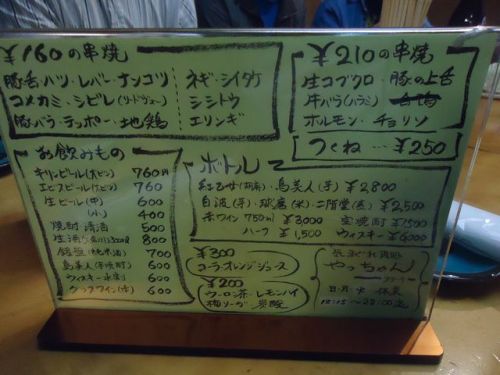 ¥160の串焼
豚舌・ハツ・レバー・ナンコツ
コメカミ・シビレ(リードヴォー)
豚バラ・テッポー・地鶏
ネギ・シイタケ
シシトウ
エリンギ
¥210の串焼
生コブクロ 豚の上舌
牛バラ(ハラミ)
ホルモン・チョリソ
つくね…¥250
お飲みもの
キリンビール(大ビン) 760円
エビスビール(大ビン) 760
生ビール(中) 600
(小) 400
焼酎 清酒 500
生酒 300ml 800
700
島美人(芋焼酎) 600
ウィスキー水割 600
グラスワイン(赤) 600
ボトル
島美人(芋) ¥2,800
白波(芋) 二階堂(麦) ¥2,500
赤ワイン 750ml ¥3,000 宝焼酎 ¥1500
ハーフ ¥1,500 ウィスキー ¥6000
¥300
コーラ・オレンジジュース
¥200
ウーロン茶・レモンハイ
梅ソーダ 炭酸
やっちゃん
日・月・火 休業